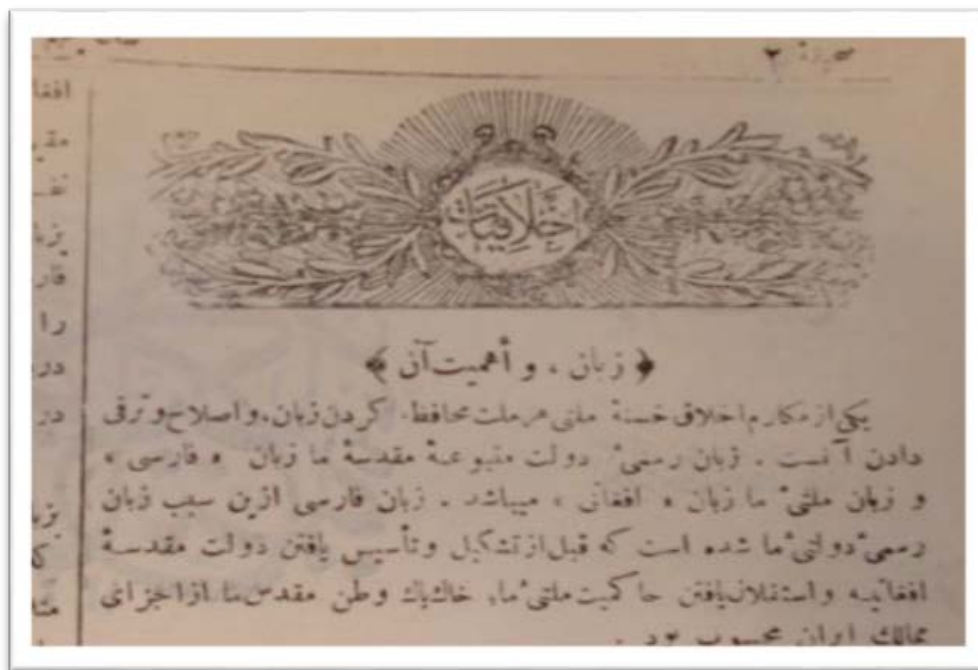 ۲
اخلاقیات
﴿ زبان ، و أهمیت آن ﴾
یکی از مکارم اخلاق حسنهٔ ملی هر ملت محافظه کردن زبان، و اصلاح و ترقی
دادن آنست . زبان رسمیٔ دولت متبوعهٔ مقدسهٔ ما زبان « فارسی »
و زبان ملتیٔ ما زبان « افغانی » میباشد . زبان فارسی ازین سبب زبان
رسمیٔ دولتیٔ ما شده است که قبل از تشکیل و تأسیس یافتن دولت مقدسهٔ
افغانیه و استقلال یافتن حاکمیت ملتیٔ ما، خاک پاک وطن مقدس ما از اجزای
ممالك ایران محسوب بود .
افغا
نف
فار
را
در
در